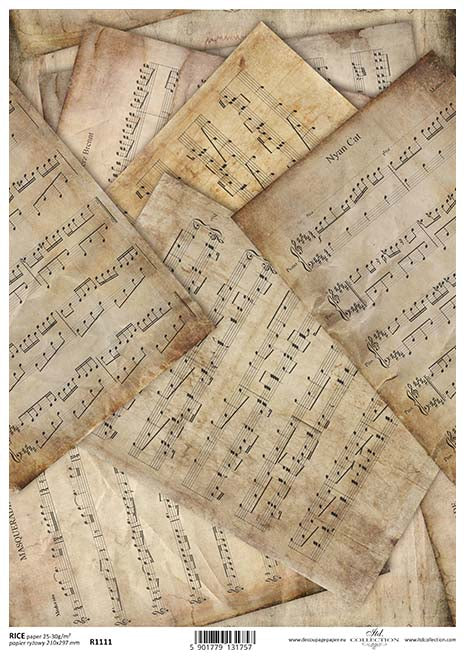 Nyan Cat
Piano
MASQUERA
RICE paper 25-30g/m²
papier ryżowy 210x297 mm
R1111
5 901779 131757
www.decoupagepaper.eu
itd.
COLLECTION
www.itdcollection.com